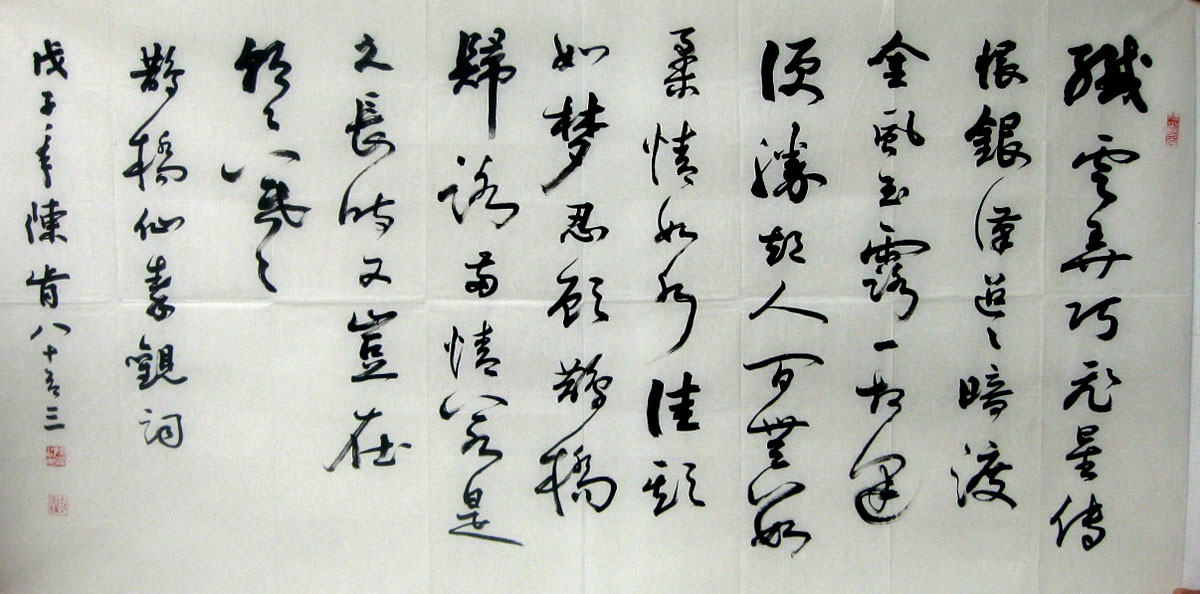 纖雲弄巧飛星传
恨銀漢迢々暗渡
金風玉露一相逢
便勝却人间無數
柔情如水佳期
如梦忍顧鵲橋
歸路兩情若是
久長時又豈在
朝々暮々
鵲橋仙秦觀詞
戊子年陳肯八十有三